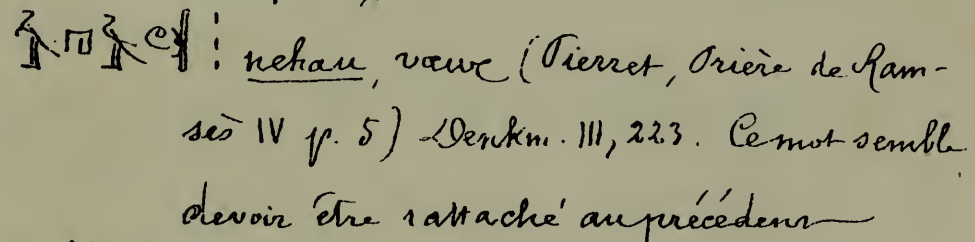 : nehau, vœux (Pierret, Prière de Ram-
sès IV p. 5) Denkm. III, 223. Ce mot semble
devoir être rattaché au précédent